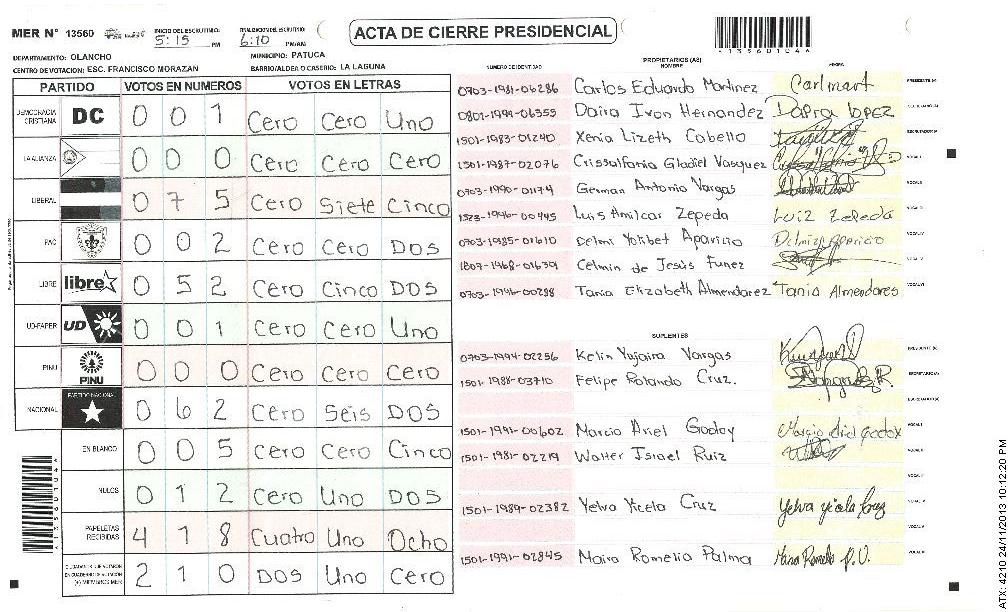 MER N° 13560 INICIO DEL ESCRUTINIO 5:15 PM FINALIZACION DEL ESCRUTINIO 6:10 PM/AM
ACTA DE CIERRE PRESIDENCIAL
DEPARTAMENTO: OLANCHO MUNICIPIO: PATUCA
CENTRO DE VOTACION: ESC. FRANCISCO MORAZAN BARRIO/ALDEA O CASERIO: LA LAGUNA
PARTIDO VOTOS EN NUMEROS VOTOS EN LETRAS
DEMOCRACIA CRISTIANA DC 0 0 1 Cero Cero Uno
LA ALIANZA 0 0 0 Cero Cero Cero
LIBERAL 0 7 5 Cero Siete Cinco
PAC 0 0 2 Cero Cero DOS
LIBRE libre 0 5 2 Cero Cinco DOS
UD-FAPER UD 0 0 1 Cero Cero Uno
PINU PINU 0 0 0 Cero Cero Cero
NACIONAL PARTIDO NACIONAL 0 6 2 Cero Seis DOS
EN BLANCO 0 0 5 Cero Cero Cinco
NULOS 0 1 2 Cero Uno DOS
PAPELETAS RECIBIDAS 4 1 8 Cuatro Uno Ocho
2 1 0 DOS Uno Cero
NUMERO DE IDENTIDAD PROPIETARIOS (AS) NOMBRE FIRMA
0703-1981-06286 Carlos Eduardo Martinez Carlmart PRESIDENTE (A)
0801-1994-06355 Daira Ivon Hernandez SECRETARIO(A)
1501-1983-01240 Xenia Lizeth Cabello ESCRUTADOR (A)
1501-1987-02076 Crissalfania Gladiel Vasquez VOCAL I
0703-1990-01174 German Antonio Vargas VOCAL II
1523-1996-00445 Luis Amilcar Zepeda Luiz Zepeda
0703-1985-01610 Delmi Yolibet Aparicio Delmi Aparicio
1807-1968-01639 Celmin de Jesús Funez
0703-1946-00288 Tania Elizabeth Almendarez Tania Almendares
SUPLENTES
0703-1994-02256 Kelin Yujaira Vargas PRESIDENTE (A)
1501-1988-03710 Felipe Rolando Cruz. SECRETARIO(A)
ESCRUTADOR (A)
1501-1991-00602 Marcio Ariel Godoy VOCAL I
1501-1981-02219 Walter Israel Ruiz
1501-1989-02382 Yelva Yicela Cruz Yelva yicela Cruz
1501-1991-02845 Maira Romelia Palma
13560104
ATX: 4210 24/11/2013 10:12:20 PM